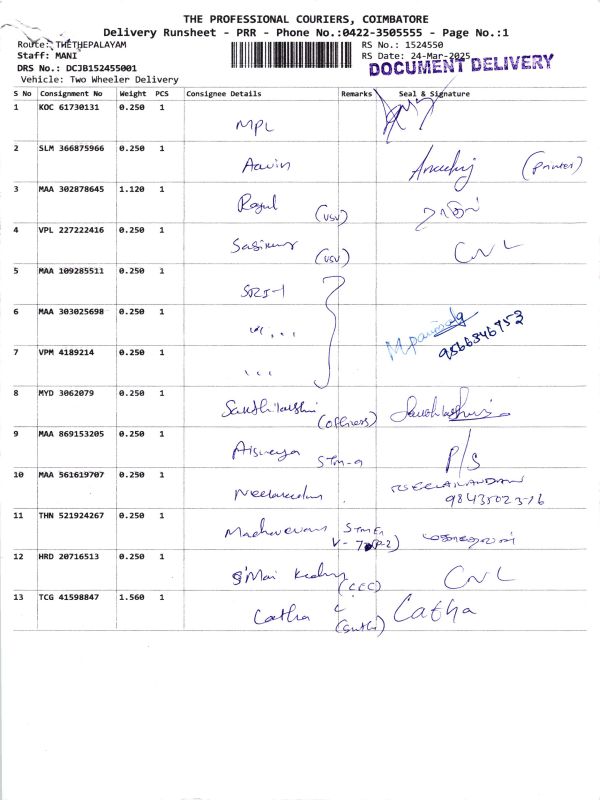 THE PROFESSIONAL COURIERS, COIMBATORE
Delivery Runsheet - PRR - Phone No.:0422-3505555 - Page No.:1
Route: THETHEPALAYAM
Staff: MANI
DRS No.: DCJB152455001
Vehicle: Two Wheeler Delivery
RS No.: 1524550
RS Date: 24-Mar-2025
DOCUMENT DELIVERY
S No Consignment No Weight PCS Consignee Details Remarks Seal & Signature
1 KOC 61730131 0.250 1 MPL
2 SLM 366875966 0.250 1 Aavin
3 MAA 302878645 1.120 1 Ragul (VSV)
4 VPL 227222416 0.250 1 (VSV) CNL
5 MAA 109285511 0.250 1 SRI-1
6 MAA 303025698 0.250 1 " ... 9566346753
7 VPM 4189214 0.250 1 ...
8 MYD 3062079 0.250 1
9 MAA 869153205 0.250 1 P/S
10 MAA 561619707 0.250 1 NEELAKANDAN
11 THN 521924267 0.250 1
12 HRD 20716513 0.250 1 (CCC) CNL
13 TCG 41598847 1.560 1 Catha Catha